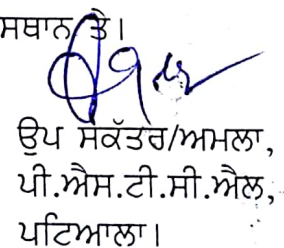 ਸਥਾਨ ਤੇ।
ਉਪ ਸਕੱਤਰ/ਅਮਲਾ,
ਪੀ.ਐਸ.ਟੀ.ਸੀ.ਐਲ,
ਪਟਿਆਲਾ।